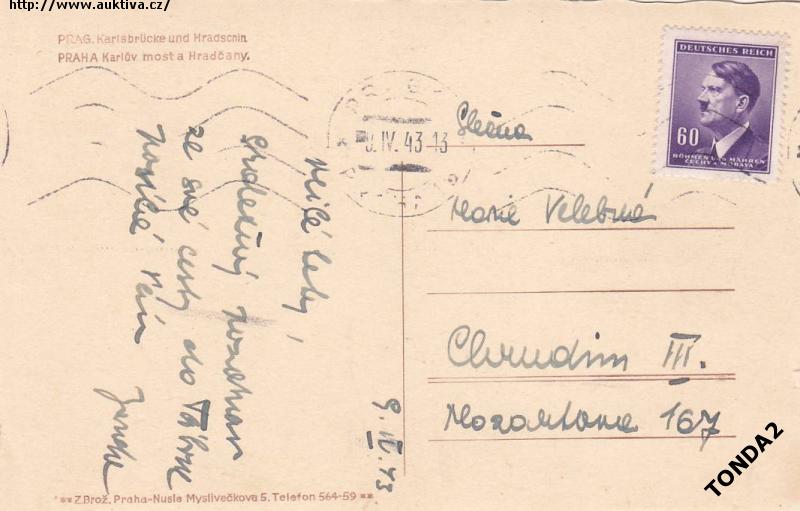 http://www.auktiva.cz/
PRAG. Karlsbrücke und Hradschin.
PRAHA Karlův most a Hradčany.
DEUTSCHES REICH
60
BÖHMEN UND MÄHREN
ČECHY A MORAVA
.IV.43 13
Slečna
Marie Velebná
Chrudim III.
Mozartova 167
Milé tety,
srdečný pozdrav
ze své cesty do Tábora
posílá Vám
9.IV.43
** Z.Brož, Praha-Nusle Myslivečkova 5. Telefon 564-59 **
TONDA2